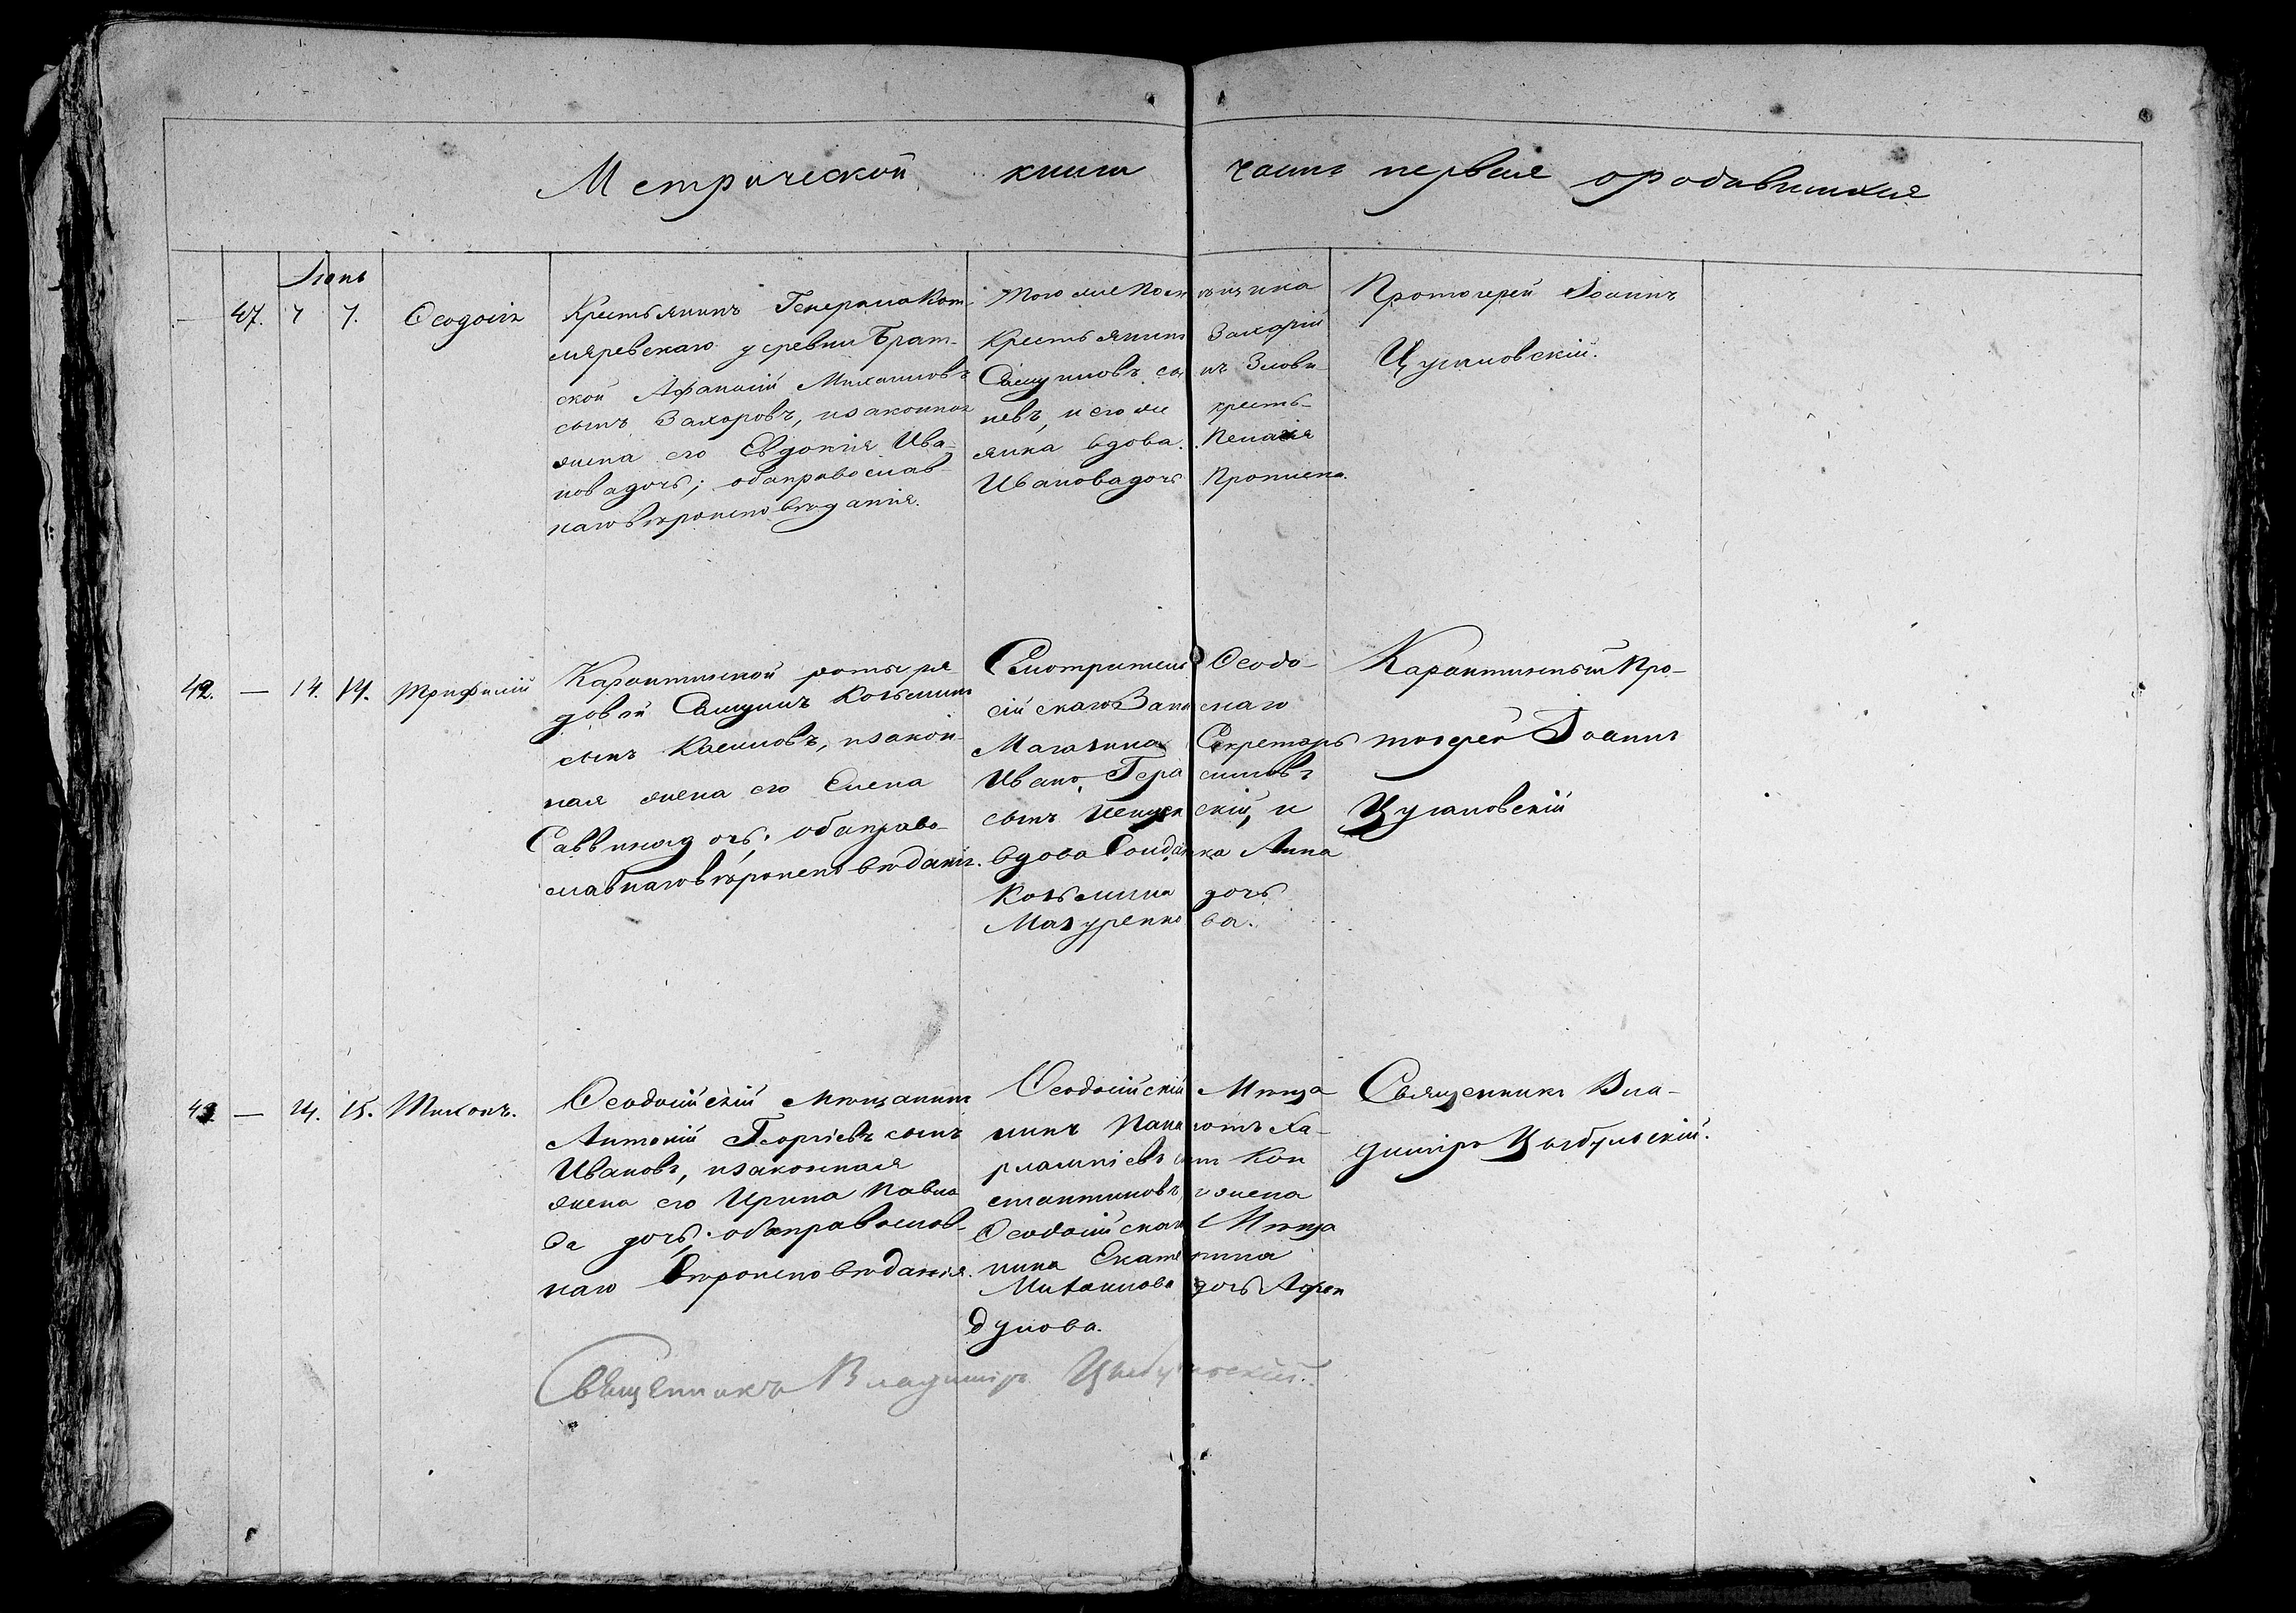 Метрической книги часть первая о родившихся
Іюнь
47. 7 7. Ѳеодосія
Крестьянинъ Генерала Кот-
ляревскаго деревни Брат-
ской Афанасій Михаиловъ
сынъ Захаровъ, и законная
жена его Евдокія Ива-
нова дочь; оба православ-
наго вѣроисповѣданія.
Того же Помѣщика
Крестьянинъ Захарій
Самуиловъ сынъ Злови-
невъ, и его же кресть-
янка вдова Пелагія
Иванова дочь
Протоіерей Іоаннъ
Цугановскій.
42. — 14. 14. Трифилій
Карантинной роты ря
довой Самуилъ Козьминъ
сынъ Климовъ, и закон-
ная жена его Елена
Саввина дочь; оба право-
славнаго вѣроисповѣданія.
Смотритель Ѳеодо-
сійскаго
Магазина Секретарь
Иванъ Герасимовъ
сынъ и
вдова Солдатка Анна
Козьмина дочь
Мазуренкова.
Карантинный Про-
тоіерей Іоаннъ
Цугановскій
43. — 14. 15. Тихонъ.
Ѳеодосійскій Мѣщанинъ
Антоній Георгіевъ сынъ
Ивановъ, и законная
жена его Ирина Павло
ва дочь; оба православ-
наго вѣроисповѣданія.
Ѳеодосійскій Мѣща
нинъ Панаіотъ Ха-
рлампіевъ сынъ Кон
стантиновъ, и жена
Ѳеодосійскаго Мѣща
нина Екатерина
Михаилова дочь Афен
дулова.
Священникъ Вла-
диміръ Цыбульскій.
Священникъ Владиміръ Цыбульскій.